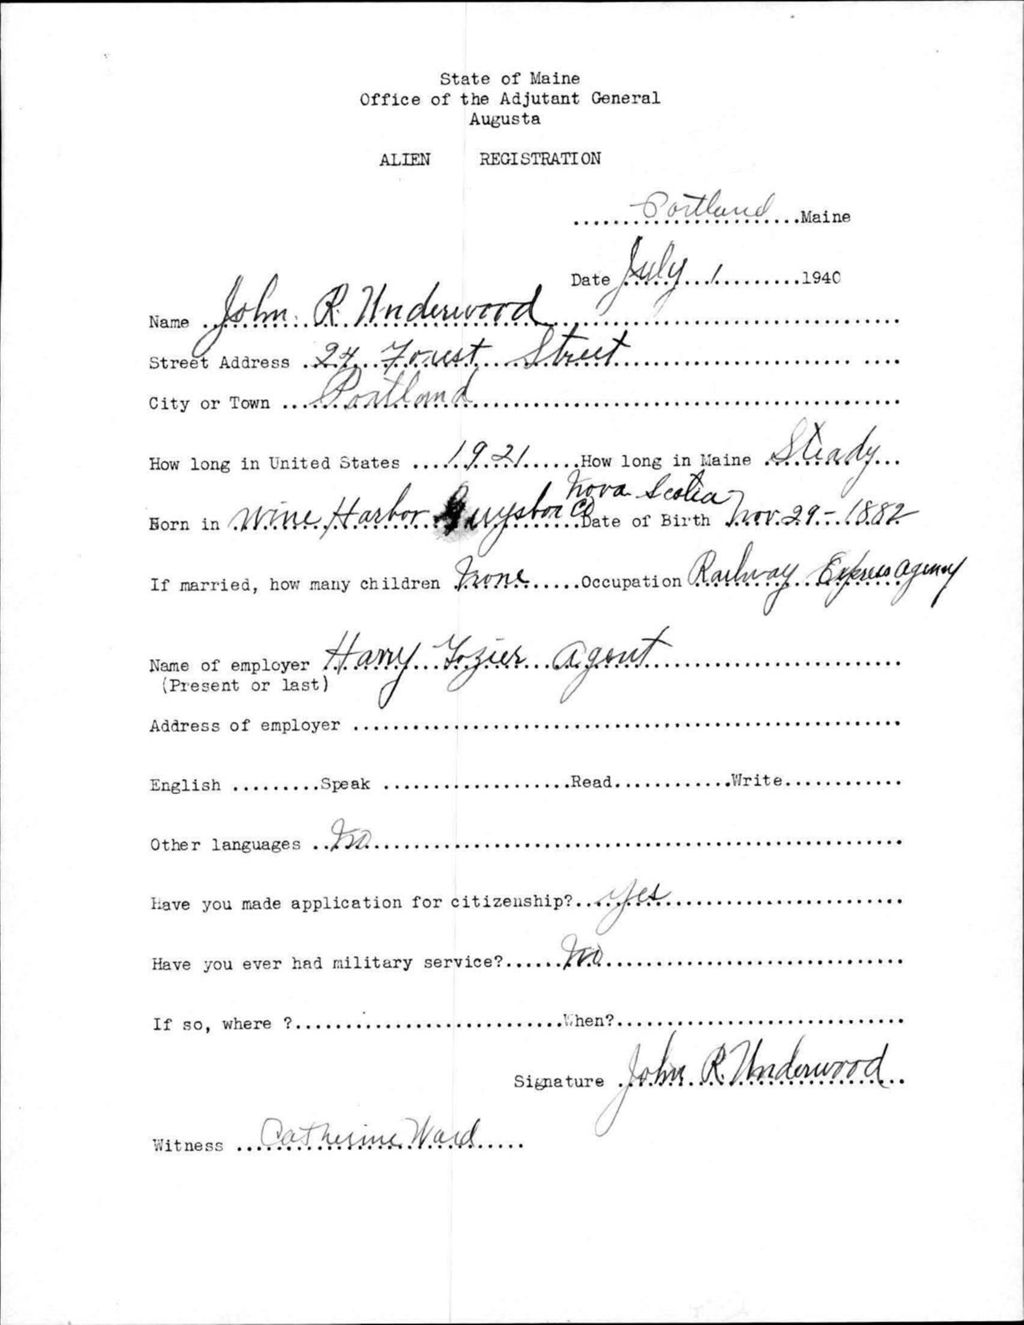 State of Maine
Office of the Adjutant General
Augusta
ALIEN REGISTRATION
Portland Maine
Date July 1 1940
Name John R. Underwood
Street Address 24 Forest Street
City or Town Portland
How long in United States 1921 How long in Maine Steady
Nova Scotia
Born in Wine Harbor Guysboro Co Date of Birth Nov. 29 - 1882
If married, how many children None Occupation Railway Express Agency
Name of employer Harry Fozier Agent
(Present or last)
Address of employer
English Speak Read Write
Other languages No
Have you made application for citizenship? yes
Have you ever had military service? No
If so, where ? When?
Signature John R. Underwood
Witness Catherine Ward